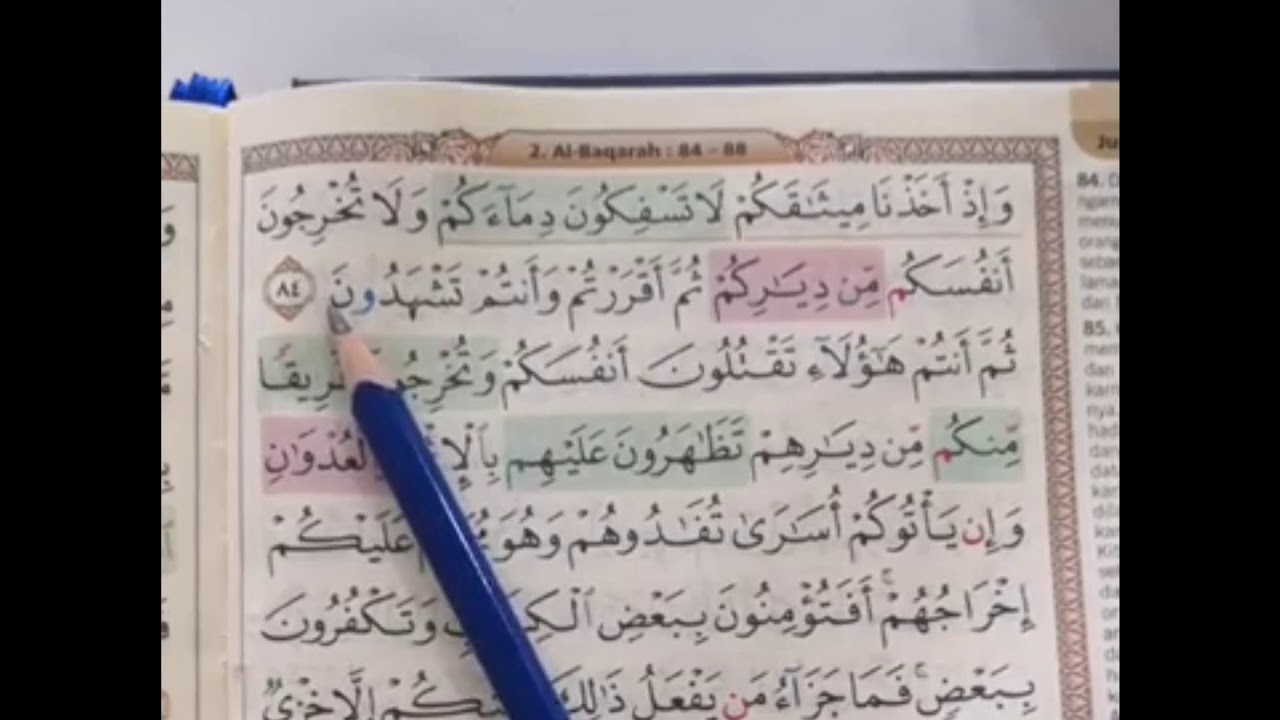 2. Al-Baqarah : 84 - 88
Ju
وَإِذْ أَخَذْنَا مِيثَٰقَكُمْ لَا تَسْفِكُونَ دِمَآءَكُمْ وَلَا تُخْرِجُونَ
أَنفُسَكُم مِّن دِيَٰرِكُمْ ثُمَّ أَقْرَرْتُمْ وَأَنتُمْ تَشْهَدُونَ ٨٤
ثُمَّ أَنتُمْ هَٰٓؤُلَآءِ تَقْتُلُونَ أَنفُسَكُمْ وَتُخْرِجُ رِيقًا
مِّنكُم مِّن دِيَٰرِهِمْ تَظَٰهَرُونَ عَلَيْهِم بِٱلْإِ لْعُدْوَٰنِ
وَإِن يَأْتُوكُمْ أُسَٰرَىٰ تُفَٰدُوهُمْ وَهُوَ عَلَيْكُمْ
إِخْرَاجُهُمْ ۚ أَفَتُؤْمِنُونَ بِبَعْضِ ٱلْكِ وَتَكْفُرُونَ
بِبَعْضٍ ۚ فَمَا جَزَآءُ مَن يَفْعَلُ ذَٰلِكَ كُمْ إِلَّا خِزْىٌ
84. D
ngam
menu
orang
seba
lama
dan
85.
mem
dan
kar
nya.
had
dat